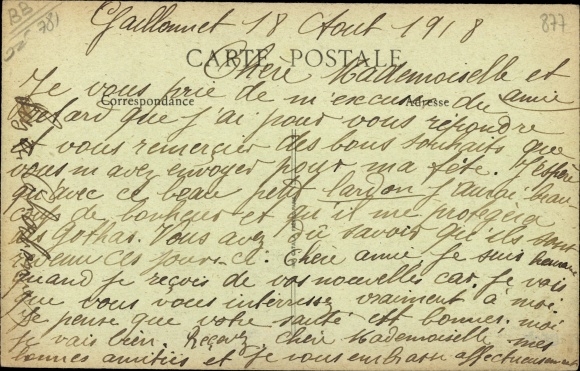 BB
781
877
Gaillonnet 18 Aout 1918
CARTE POSTALE
Correspondance
Adresse
Chère Mademoiselle et
amie
Je vous prie de m'excuser du
retard que j'ai pour vous répondre
et vous remercier des bons souhaits que
vous m'avez envoyer pour ma fête. J'espère
qu'avec ce beau petit lardon j'aurai beau
de bonheur et qu'il me protegera
des gothas. Vous avez dû savoir qu'ils sont
revenu ces jours-ci. Chère amie, je suis
quand je reçois de vos nouvelles car je vois
que vous vous interresse vraiment a moi.
Je pense que votre santé est bonne. moi
je vais bien. Recevez, Chère Mademoiselle, mes
bonnes amitiés et je vous embrasse affectueusement